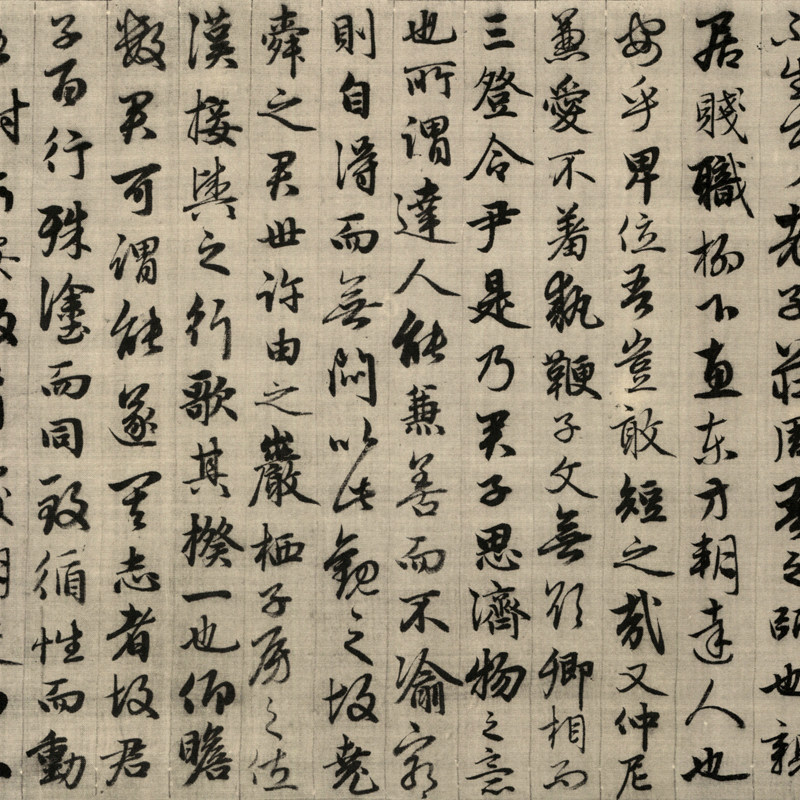 老子莊周吾之師也親
居賤職柳下惠東方朔達人也
安乎卑位吾豈敢短之哉又仲尼
兼愛不羞執鞭子文無欲卿相而
三登令尹是乃君子思濟物之意
也所謂達人能兼善而不渝窮
則自得而無悶以此觀之故堯
舜之君世許由之巖栖子房之佐
漢接輿之行歌其揆一也仰瞻
數君可謂能遂其志者故君
子百行殊塗而同致循性而動